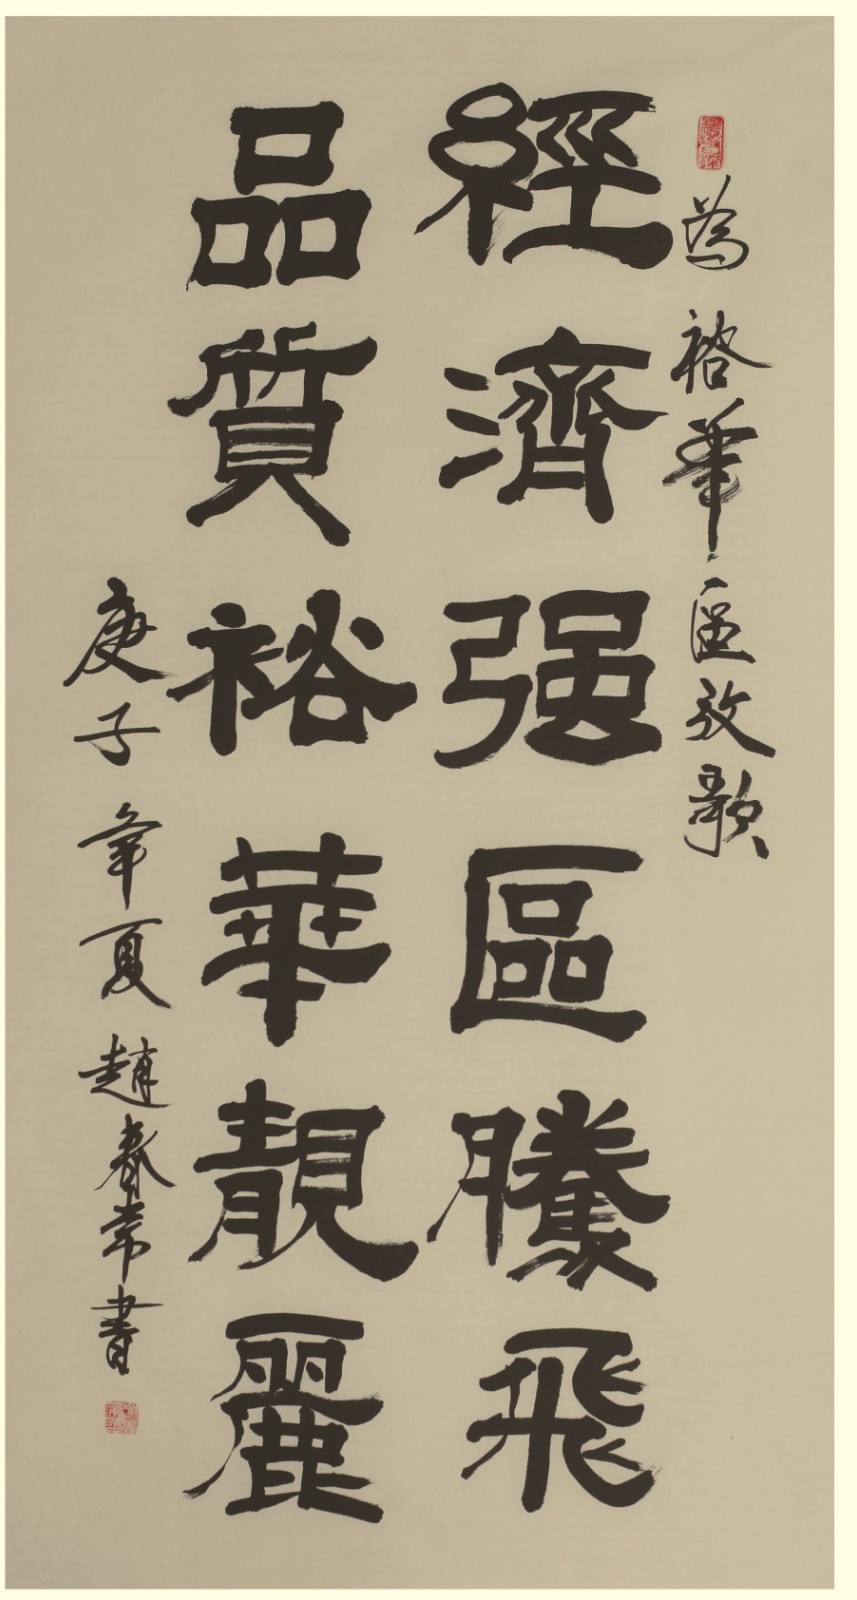 為裕華區放歌
經濟强區騰飛
品質裕華靚麗
庚子年夏趙春常書